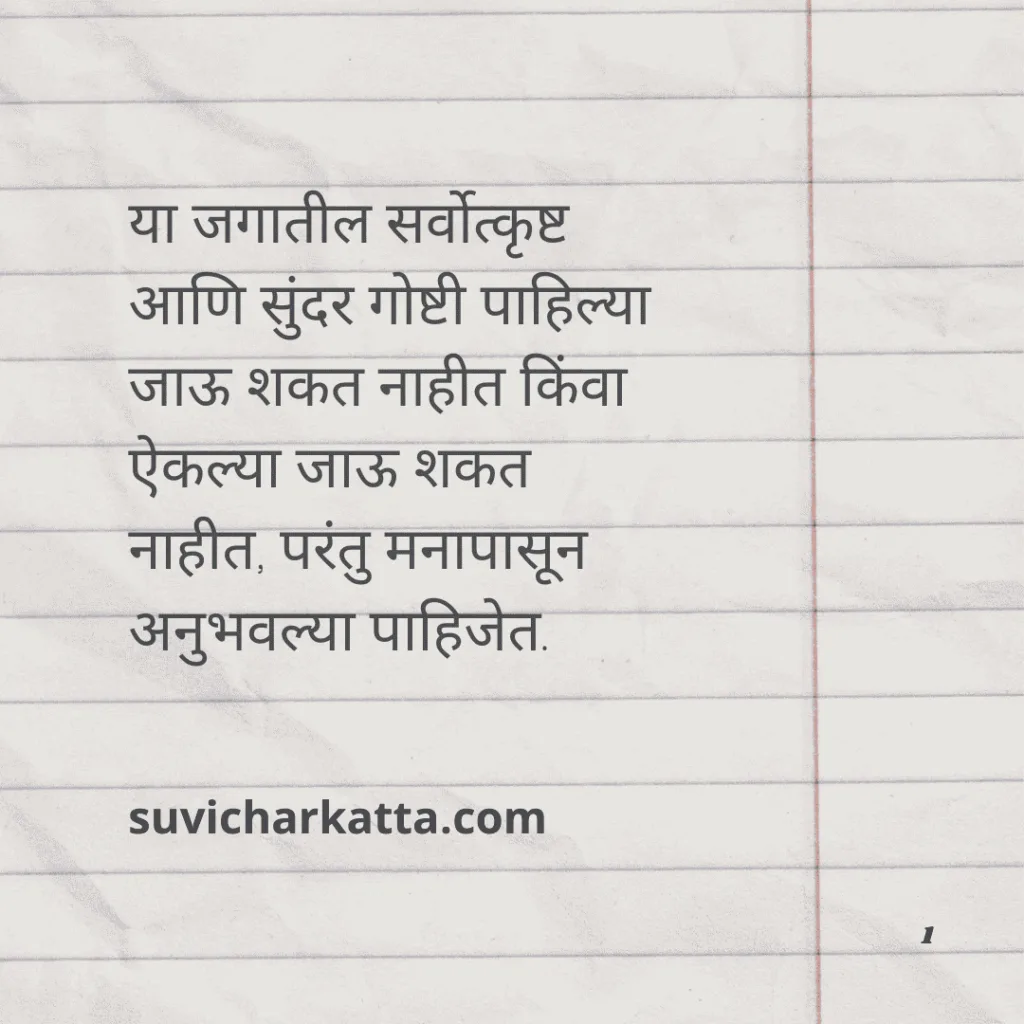 या जगातील सर्वोत्कृष्ट
आणि सुंदर गोष्टी पाहिल्या
जाऊ शकत नाहीत किंवा
ऐकल्या जाऊ शकत
नाहीत, परंतु मनापासून
अनुभवल्या पाहिजेत.
suvicharkatta.com
1